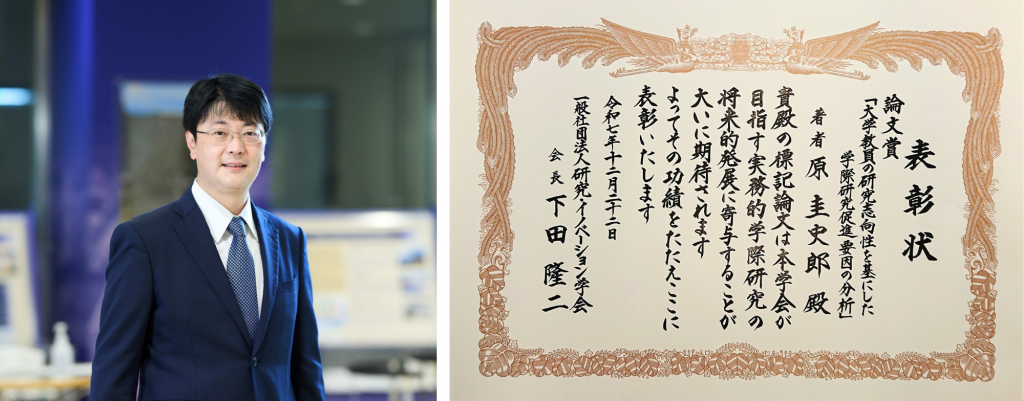 表彰状
論文賞
「大学教員の研究志向性を基にした
学際研究促進要因の分析」
著者 原圭史郎 殿
貴殿の標記論文は本学会が
目指す実務的学際研究の
将来的発展に寄与することが
大いに期待されます
よってその功績をたたえここに
表彰いたします
令和七年十二月二十二日
一般社団法人研究・イノベーション学会
会長 下田隆二